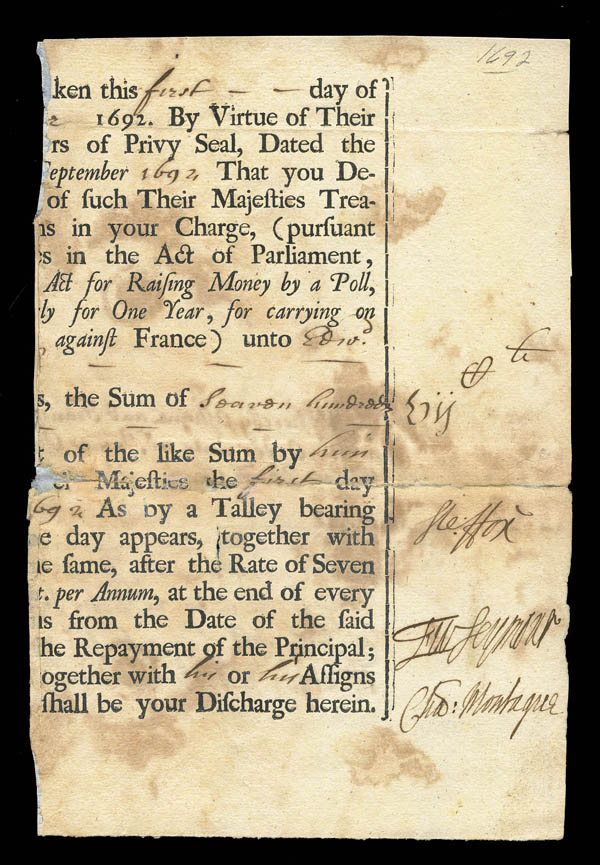 1692
ken this first — — day of
1692. By Virtue of Their
rs of Privy Seal, Dated the
September 1692 That you De-
of ſuch Their Majeſties Trea-
ns in your Charge, (purſuant
s in the Act of Parliament,
Act for Raiſing Money by a Poll,
ly for One Year, for carrying on
againſt France) unto Edwd
s, the Sum of Seaven hundred
t of the like Sum by him
er Majeſties the first day
692 As by a Talley bearing
e day appears, together with
he ſame, after the Rate of Seven
t. per Annum, at the end of every
hs from the Date of the ſaid
he Repayment of the Principal;
ogether with his or his Aſſigns
ſhall be your Diſcharge herein.
Ste: ffox
Edw Seymour
Cha: Montague